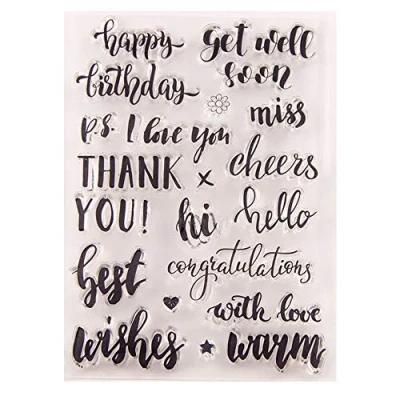 happy
birthday
get well
soon
p.s. I love you
miss
THANK
YOU!
x
cheers
hi
hello
best
wishes
congratulations
with love
warm